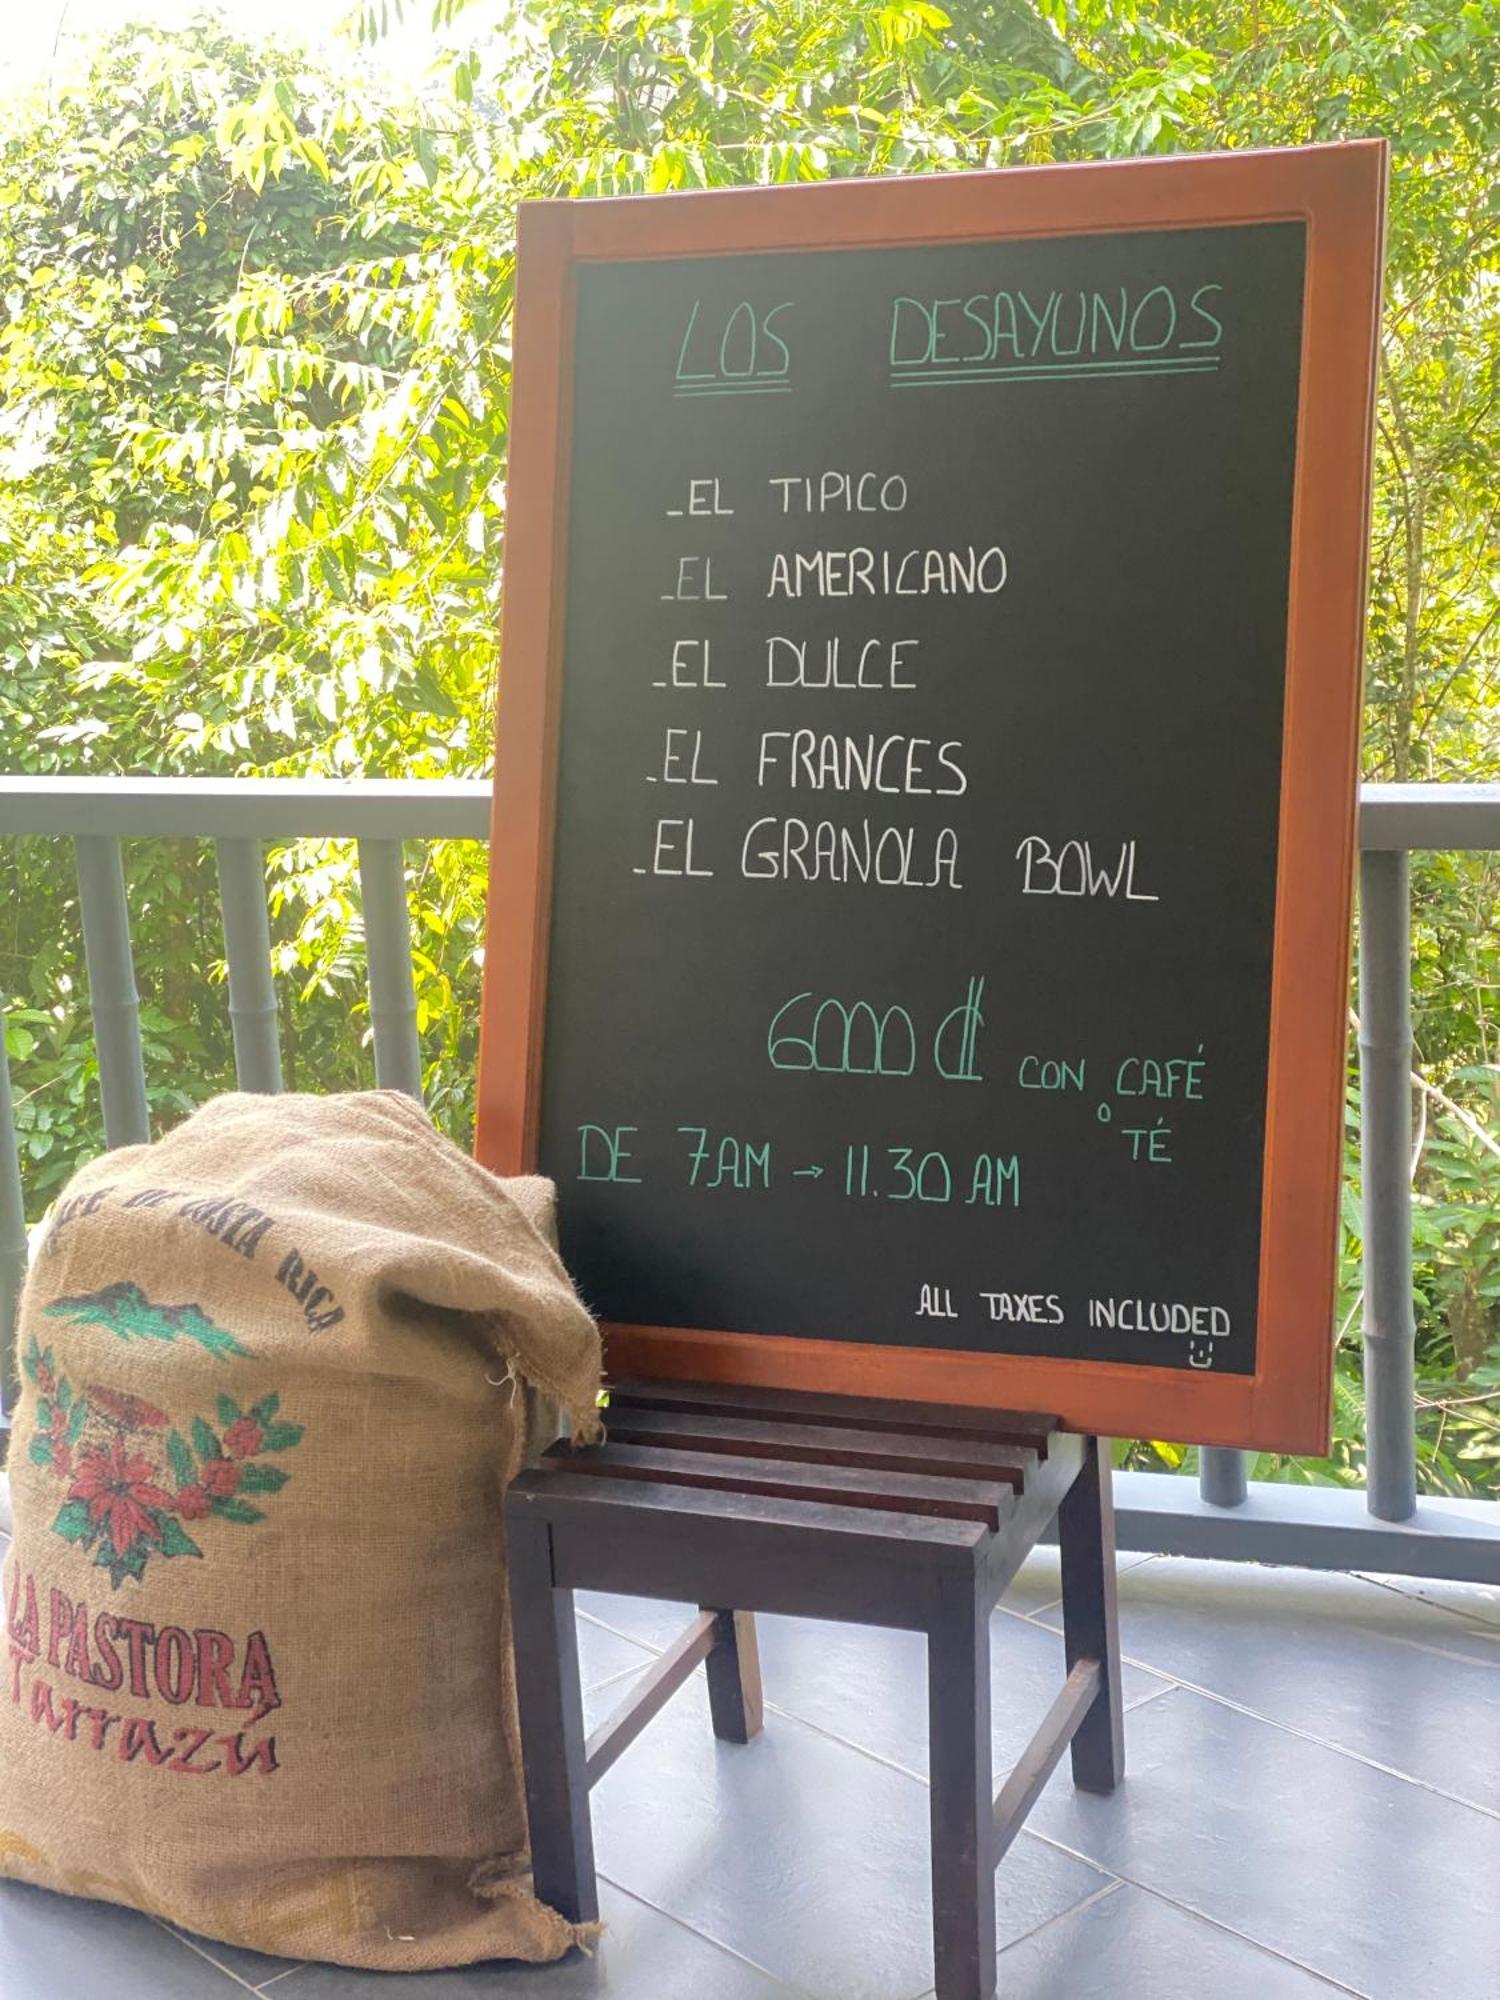 LOS DESAYUNOS
_EL TIPICO
_EL AMERICANO
_EL DULCE
_EL FRANCES
_EL GRANOLA BOWL
6000 ₡ CON CAFÉ
O
TÉ
DE 7AM → 11.30 AM
ALL TAXES INCLUDED
DE COSTA RICA
LA PASTORA
Tarrazú